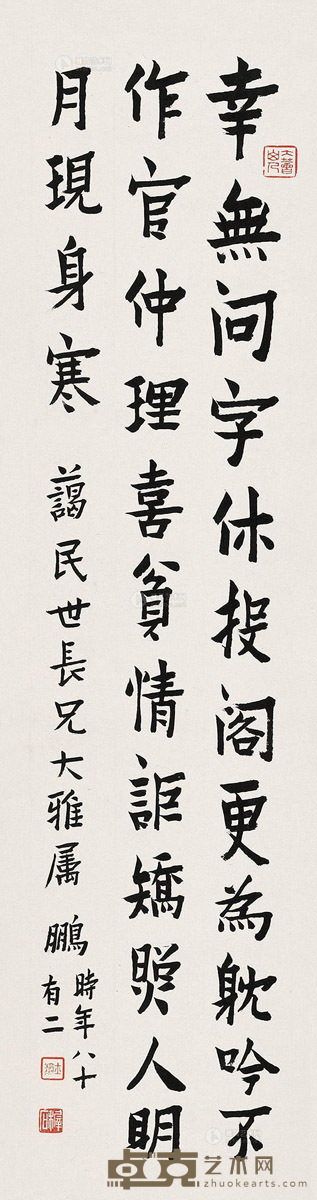 幸無问字休投阁更為躭吟不
作官仲理喜貧情詎矯照人明
月現身寒
藹民世長兄大雅属 鵬時年八十
有二
卓克艺术网
www.zhuokearts.com